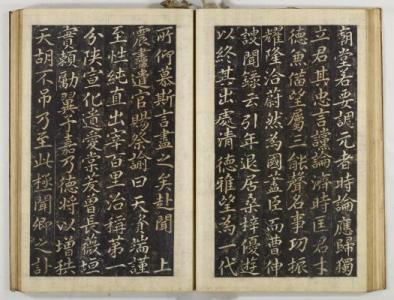 廟堂若要調元者時論應歸獨
立君其忠言讜論濟時匡君才
德兼備望屬三能聲名事功振
耀隆洽蔚然為國藎臣而曹伸
謏聞錄云引年退居桑梓優遊
以終其出處清德雅望為一代
所仰慕斯言盡之矣赴聞 上
震衋遣官賜祭諭曰天資端謹
至性純直出宰百里治稱第一
分陝宣化遺愛棠 曾長薇垣
實賴勵翼予嘉乃德將以增秩
天胡不弔乃至此極聞卿之訃